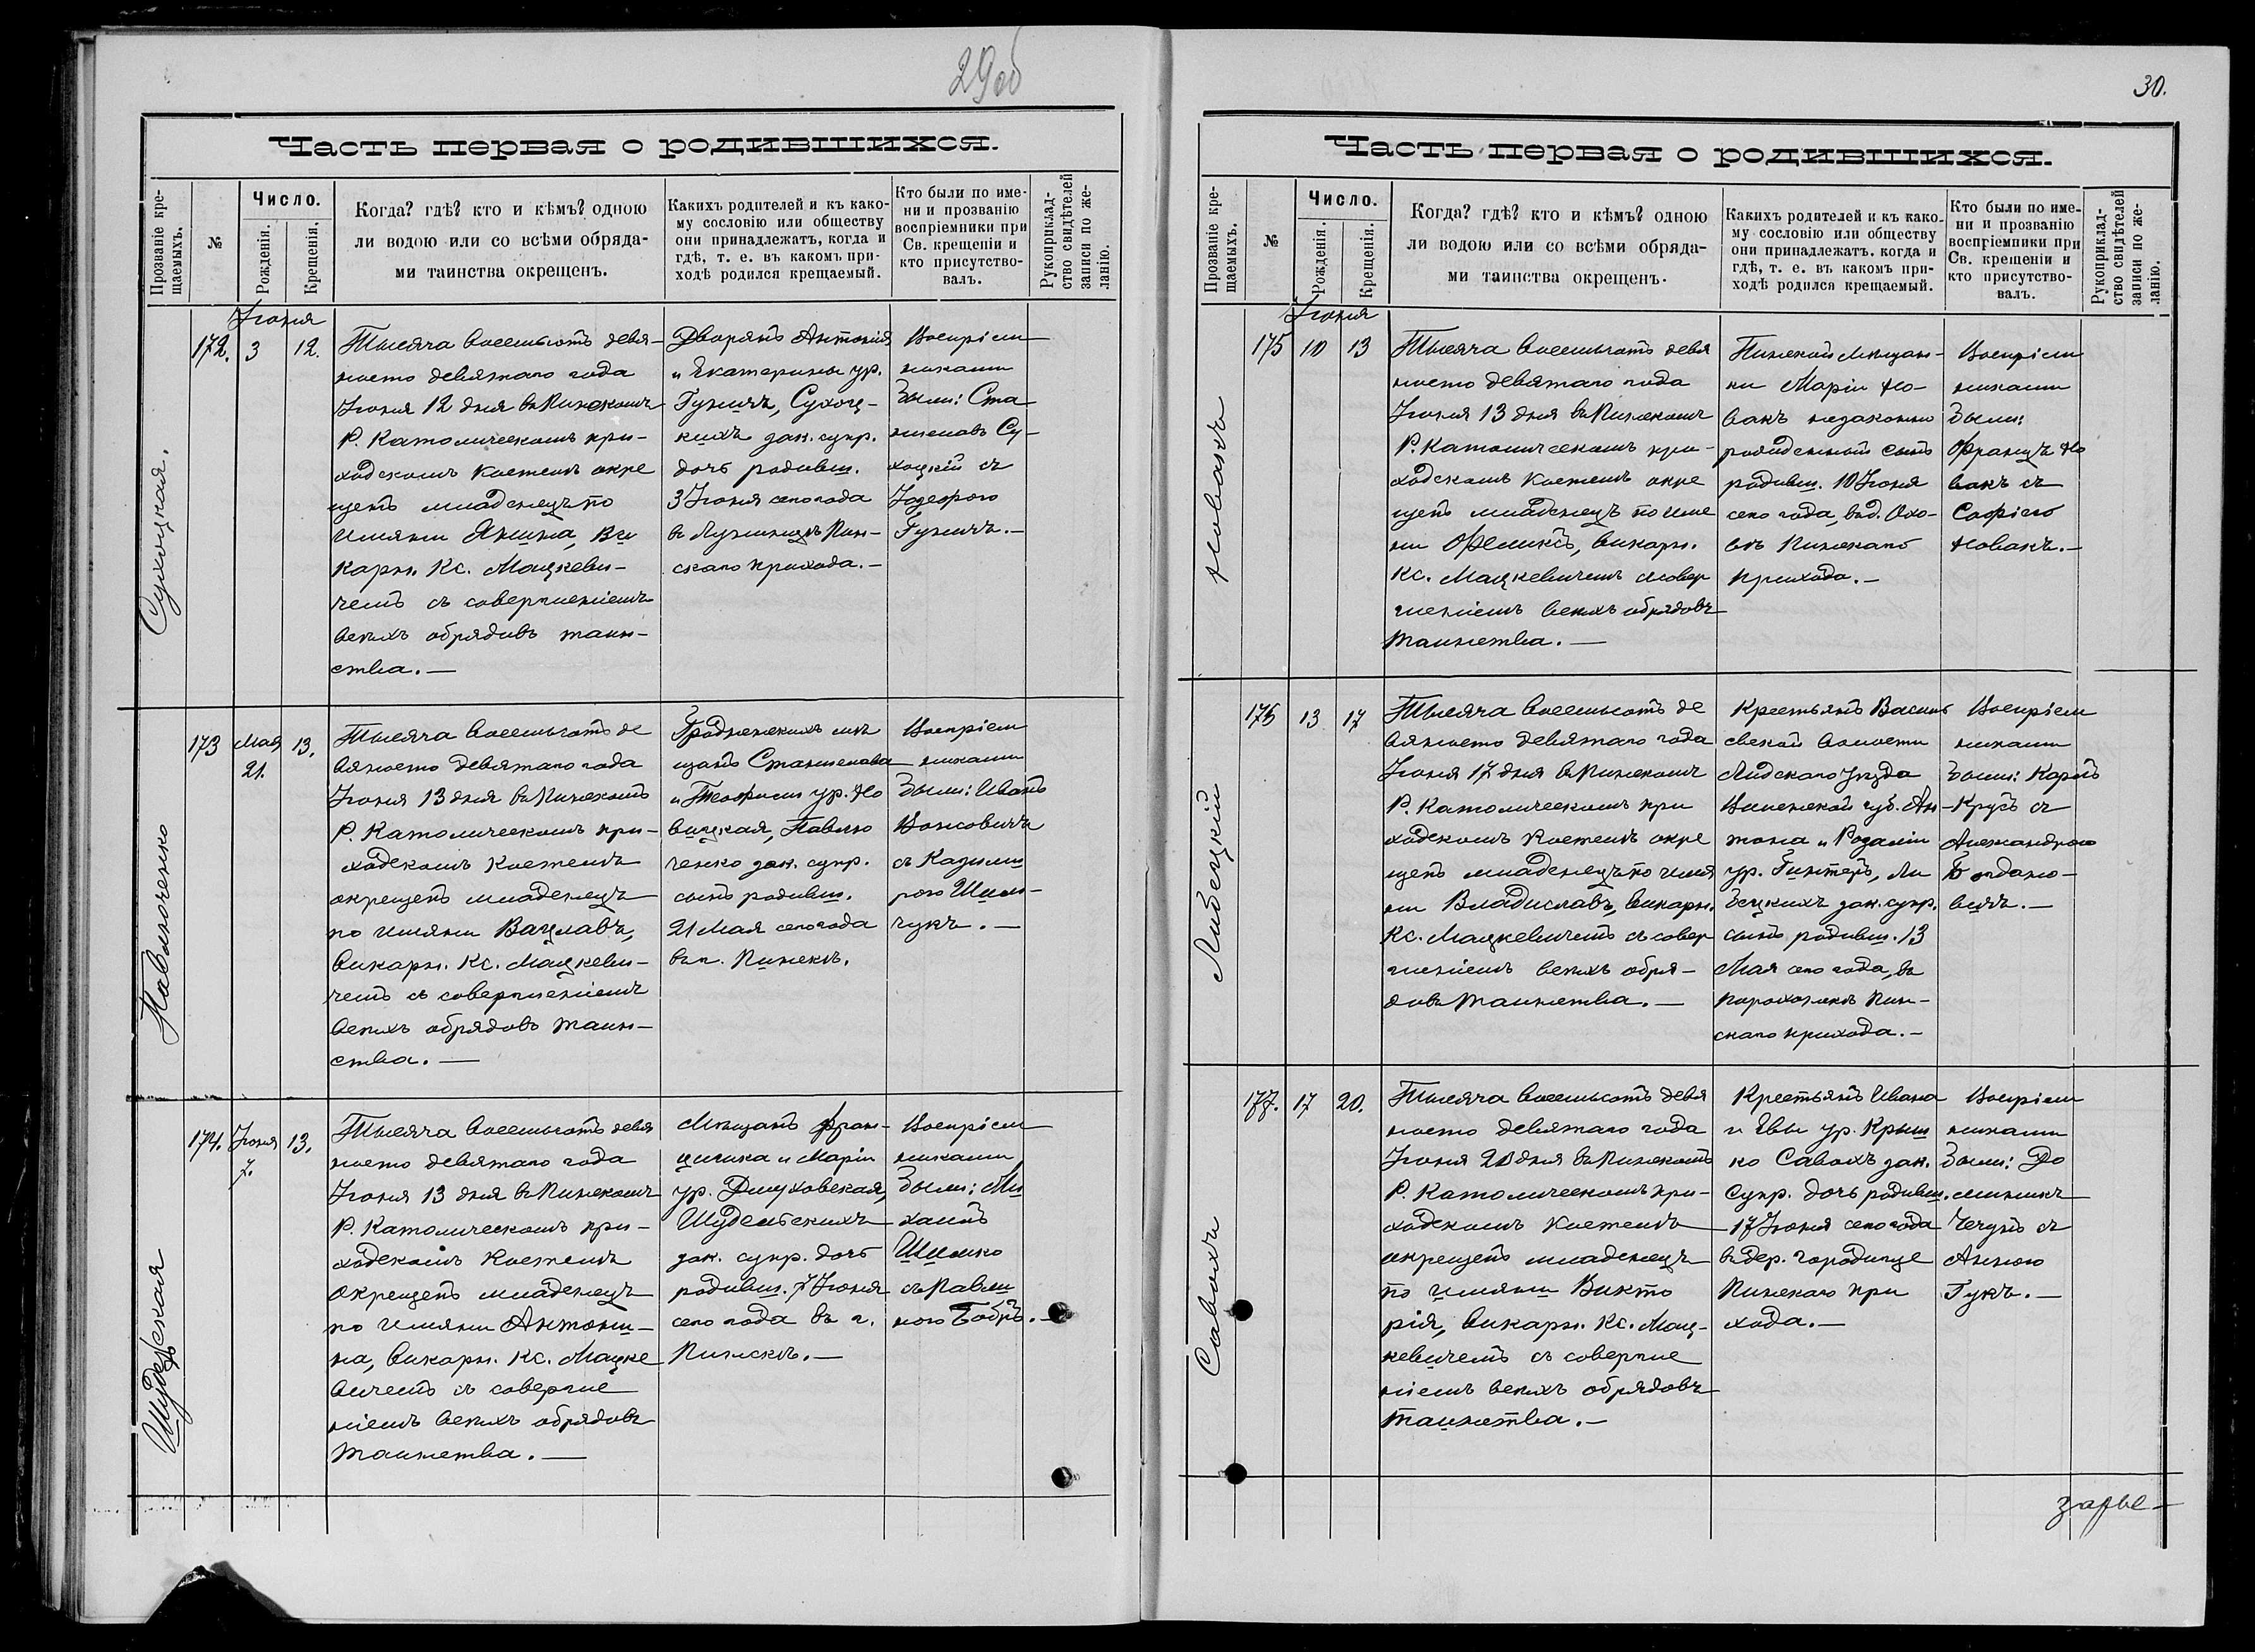 29об
Часть первая о родившихся.
Прозваніе кре-
щаемыхъ.
№
Число.
Рожденія.
Крещенія.
Когда? гдѣ? кто и кѣмъ? одною
ли водою или со всѣми обряда-
ми таинства окрещенъ.
Какихъ родителей и къ како-
му сословію или обществу
они принадлежатъ, когда и
гдѣ, т. е. въ какомъ при-
ходѣ родился крещаемый.
Кто были по име-
ни и прозванію
воспріемники при
Св. крещеніи и
кто присутство-
валъ.
Рукоприклад-
ство свидѣтелей
записи по же-
ланію.
Сухоцкая.
Іюня
172. 3 12.
Тысяча восемьсотъ девя-
носто девятаго года
Іюня 12 дня въ Пинскомъ
Р. Католическомъ при-
ходскомъ костелѣ окре
щенъ младенецъ по
имяни Янина, Ви
карн. Кс. Мацкеви-
чемъ съ совершеніемъ
всѣхъ обрядовъ таин-
ства.—
Дворянъ Антонія
и Екатерины ур.
Гуничъ, Сухоц-
кихъ зак. супр.
дочь родивш.
3 Іюня сего года
въ Пин-
скаго прихода.—
Воспріем
никами
были: Ста
ниславъ Су-
хоцкій съ
Іозефою
Гуничъ.—
Павлюченко
173 Мая 13.
21.
Тысяча восемьсотъ де
вяносто девятаго года
Іюня 13 дня въ Пинскомъ
Р. Католическомъ при-
ходскомъ костелѣ
окрещенъ младенецъ
по имяни Вацлавъ,
викарн. Кс. Мацкеви-
чемъ съ совершеніемъ
всѣхъ обрядовъ таин-
ства.—
Гродненскихъ мѣ
щанъ Станислава
и Теофили ур. Но
вицкая, Павлю
ченко зак. супр.
сынъ родивш.
21 Мая сего года
въ г. Пинскѣ.
Воспріем
никами
были: Иванъ
съ Казими
рою Шим-
чукъ.—
Шудельская
174. Іюня 13.
7.
Тысяча восемьсотъ девя
носто девятаго года
Іюня 13 дня въ Пинскомъ
Р. Католическомъ при-
ходскомъ костелѣ
окрещенъ младенецъ
по имяни Антони-
на, викарн. Кс. Мацке
вичемъ съ соверше
ніемъ всѣхъ обрядовъ
таинства.—
Мѣщанъ Фран-
цишка и Маріи
ур. Дмуховская,
Шудельскихъ
зак. супр. дочь
родивш. 7 Іюня
сего года въ г.
Пинскѣ.—
Воспріем
никами
были: Ми
хаилъ
Шимко
съ Павли
ною Бобръ.—
30.
Часть первая о родившихся.
Прозваніе кре-
щаемыхъ.
№
Число.
Рожденія.
Крещенія.
Когда? гдѣ? кто и кѣмъ? одною
ли водою или со всѣми обряда-
ми таинства окрещенъ.
Какихъ родителей и къ како-
му сословію или обществу
они принадлежатъ. когда и
гдѣ, т. е. въ какомъ при-
ходѣ родился крещаемый.
Кто были по име-
ни и прозванію
воспріемники при
Св. крещеніи и
кто присутство-
валъ.
Рукоприклад-
ство свидѣтелей
записи по же-
ланію.
Новакъ
Іюня
175 10 13
Тысяча восемьсотъ девя
носто девятаго года
Іюня 13 дня въ Пинскомъ
Р. Католическомъ при-
ходскомъ костелѣ окре
щенъ младенецъ по име
ни Феликсъ, викарн.
Кс. Мацкевичемъ съ совер
шеніемъ всѣхъ обрядовъ
таинства.—
Пинской мѣщан-
ки Маріи Но-
вакъ незаконно
рожденный сынъ
родивш. 10 Іюня
сего года, въ д. Охо-
вѣ Пинскаго
прихода.—
Воспріем
никами
были:
Францъ Но
вакъ съ
Софіею
Новакъ.—
Либецкій
176 13 17
Тысяча восемьсотъ де
вяносто девятаго года
Іюня 17 дня въ Пинскомъ
Р. Католическомъ при
ходскомъ костелѣ окре
щенъ младенецъ по имя
ни Владиславъ, викарн.
Кс. Мацкевичемъ съ совер
шеніемъ всѣхъ обря-
довъ таинства.—
Крестьянъ Васили
свской волости
Лидскаго уѣзда
Виленской губ. Ан-
тона и Розаліи
ур. Гинтеръ, Ли
бецкихъ зак. супр.
сынъ родивш. 13
Мая сего года, въ
Пин-
скаго прихода.—
Воспріем
никами
были: Карлъ
Крусъ съ
Александрою
Богдано-
вичъ.—
Савихъ
177. 17 20.
Тысяча восемьсотъ девя
носто девятаго года
Іюня 20 дня въ Пинскомъ
Р. Католическомъ при-
ходскомъ костелѣ
окрещенъ младенецъ
по имяни Викто
рія, викарн. Кс. Мац-
кевичемъ съ соверше
ніемъ всѣхъ обрядовъ
таинства.—
Крестьянъ Ивана
и Евы ур. Крыш
ко Савихъ зак.
супр. дочь родивш.
17 Іюня сего года
въ дер. Городище
Пинскаго при
хода.—
Воспріем
никами
были: До
миникъ
Чечунъ съ
Анною
Гукъ.—